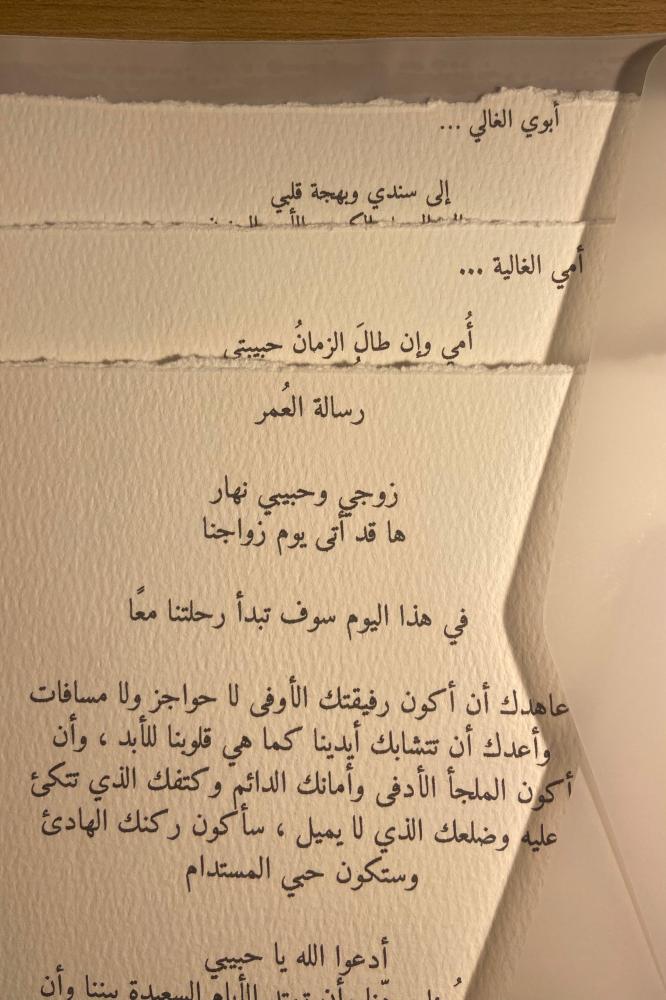 أبوي الغالي ...
إلى سندي وبهجة قلبي
أمي الغالية ...
أُمي وإن طالَ الزمانُ حبيبتي
رسالة العُمر
زوجي وحبيبي نهار
ها قد أتى يوم زواجنا
في هذا اليوم سوف تبدأ رحلتنا معًا
عاهدك أن أكون رفيقتك الأوفى لا حواجز ولا مسافات
وأعدك أن تتشابك أيدينا كما هي قلوبنا للأبد ، وأن
أكون الملجأ الأدفى وأمانك الدائم وكتفك الذي تتكئ
عليه وضلعك الذي لا يميل ، سأكون ركنك الهادئ
وستكون حبي المستدام
أدعوا الله يا حبيبي
وأن تمتد الأيام السعيدة بيننا وأن